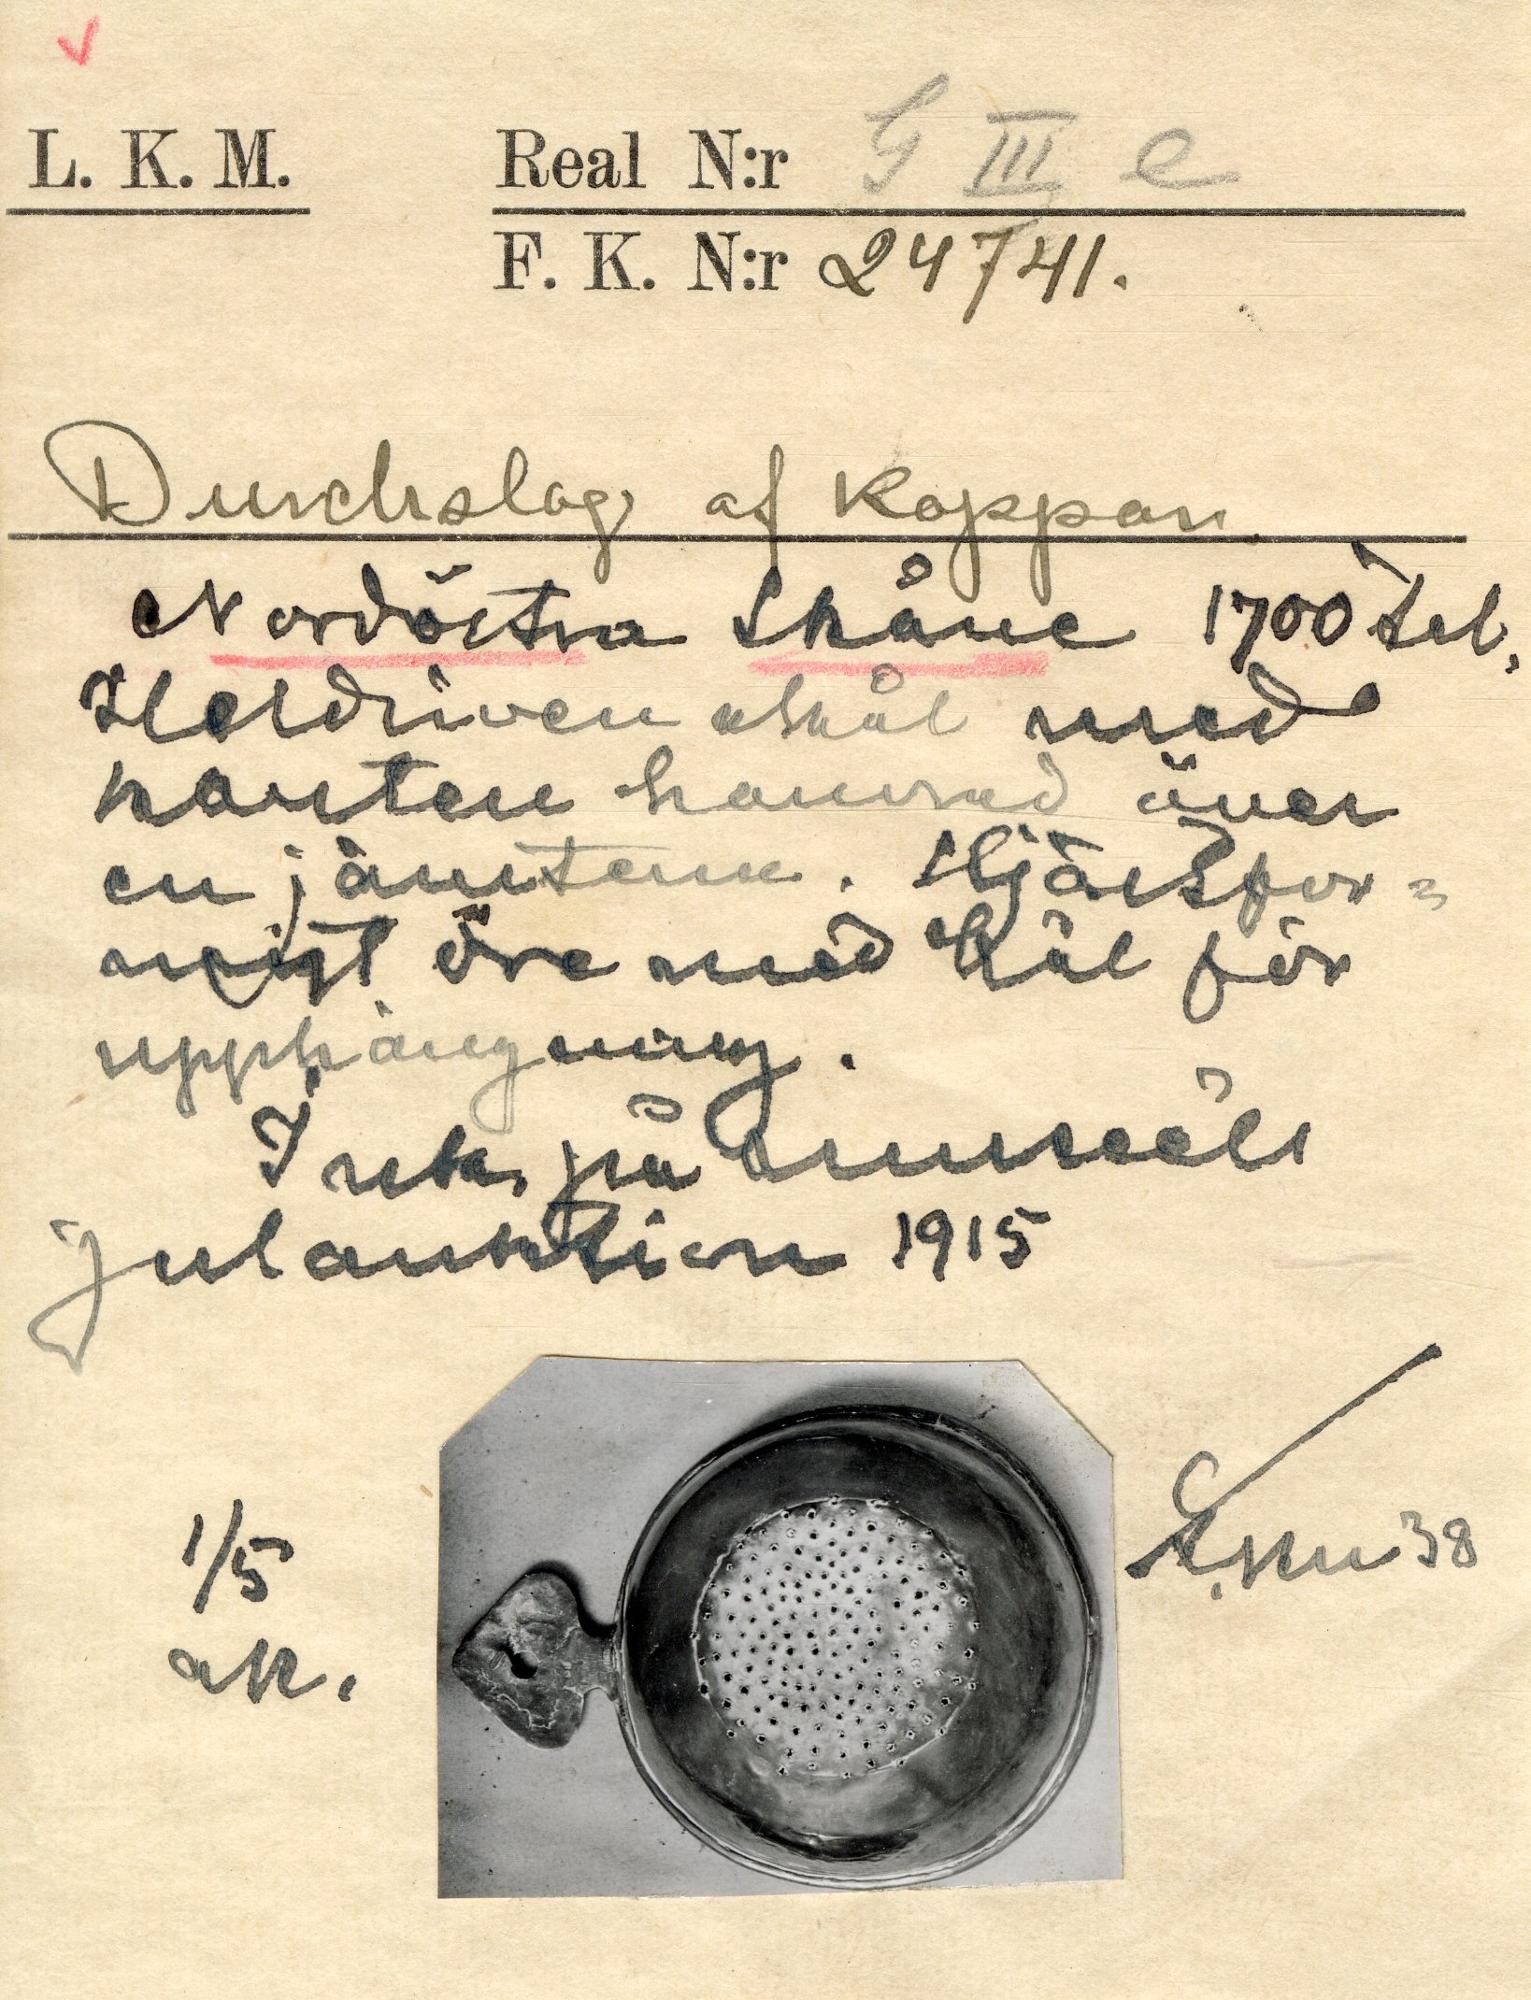 L. K. M. Real N:r G III e
F. K. N:r 24741.
Durchslag af koppar
Nordöstra Skåne 1700 tal.
Heldriven skål med
kanten hamrad över
en järnten. Hjärtfor-
migt öre med hål för
upphängning.
Ink. på museets
julauktion 1915
1/5
ak. 38